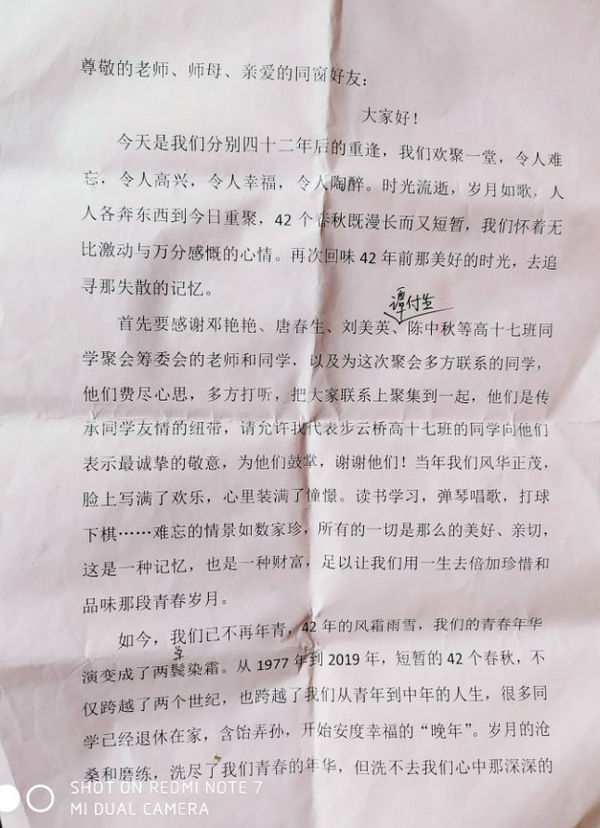 尊敬的老师、师母、亲爱的同窗好友：
大家好！
今天是我们分别四十二年后的重逢，我们欢聚一堂，令人难
忘，令人高兴，令人幸福，令人陶醉。时光流逝，岁月如歌，人
人各奔东西到今日重聚，42 个春秋既漫长而又短暂，我们怀着无
比激动与万分感慨的心情。再次回味 42 年前那美好的时光，去追
寻那失散的记忆。
谭付生
首先要感谢邓艳艳、唐春生、刘美英、陈中秋等高十七班同
学聚会筹委会的老师和同学，以及为这次聚会多方联系的同学，
他们费尽心思，多方打听，把大家联系上聚集到一起，他们是传
承同学友情的纽带，请允许我代表步云桥高十七班的同学向他们
表示最诚挚的敬意，为他们鼓掌，谢谢他们！当年我们风华正茂，
脸上写满了欢乐，心里装满了憧憬。读书学习，弹琴唱歌，打球
下棋……难忘的情景如数家珍，所有的一切是那么的美好、亲切，
这是一种记忆，也是一种财富，足以让我们用一生去倍加珍惜和
品味那段青春岁月。
如今，我们已不再年青，42 年的风霜雨雪，我们的青春年华
演变成了两鬓染霜。从 1977 年到 2019 年，短暂的 42 个春秋，不
仅跨越了两个世纪，也跨越了我们从青年到中年的人生，很多同
学已经退休在家，含饴弄孙，开始安度幸福的“晚年”。岁月的沧
桑和磨练，洗尽了我们青春的年华，但洗不去我们心中那深深的
SHOT ON REDMI NOTE 7
MI DUAL CAMERA